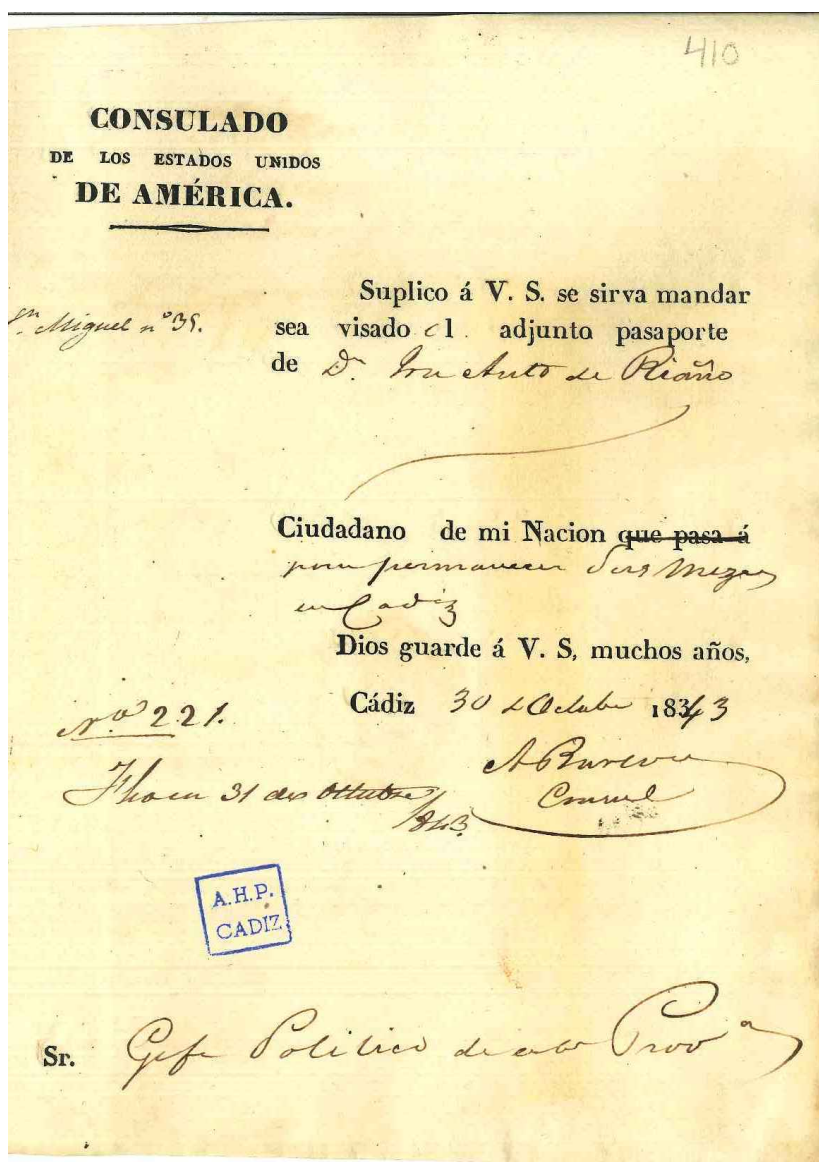 410
CONSULADO
DE LOS ESTADOS UNIDOS
DE AMÉRICA.
Suplico á V. S. se sirva mandar
Sn. Miguel nº 35.
sea visado el adjunto pasaporte
de Dn. Anto de Riaño
Ciudadano de mi Nacion que pasa á
para permanecer Seis Mezes
en Cadiz
Dios guarde á V. S, muchos años,
Cádiz 30 d Octubre 18343
No. 221.
A Burton
Consul
Fho en 31 de Octubre
1843.
A.H.P.
CADIZ
Sr. Gefe Politico de esta Prova